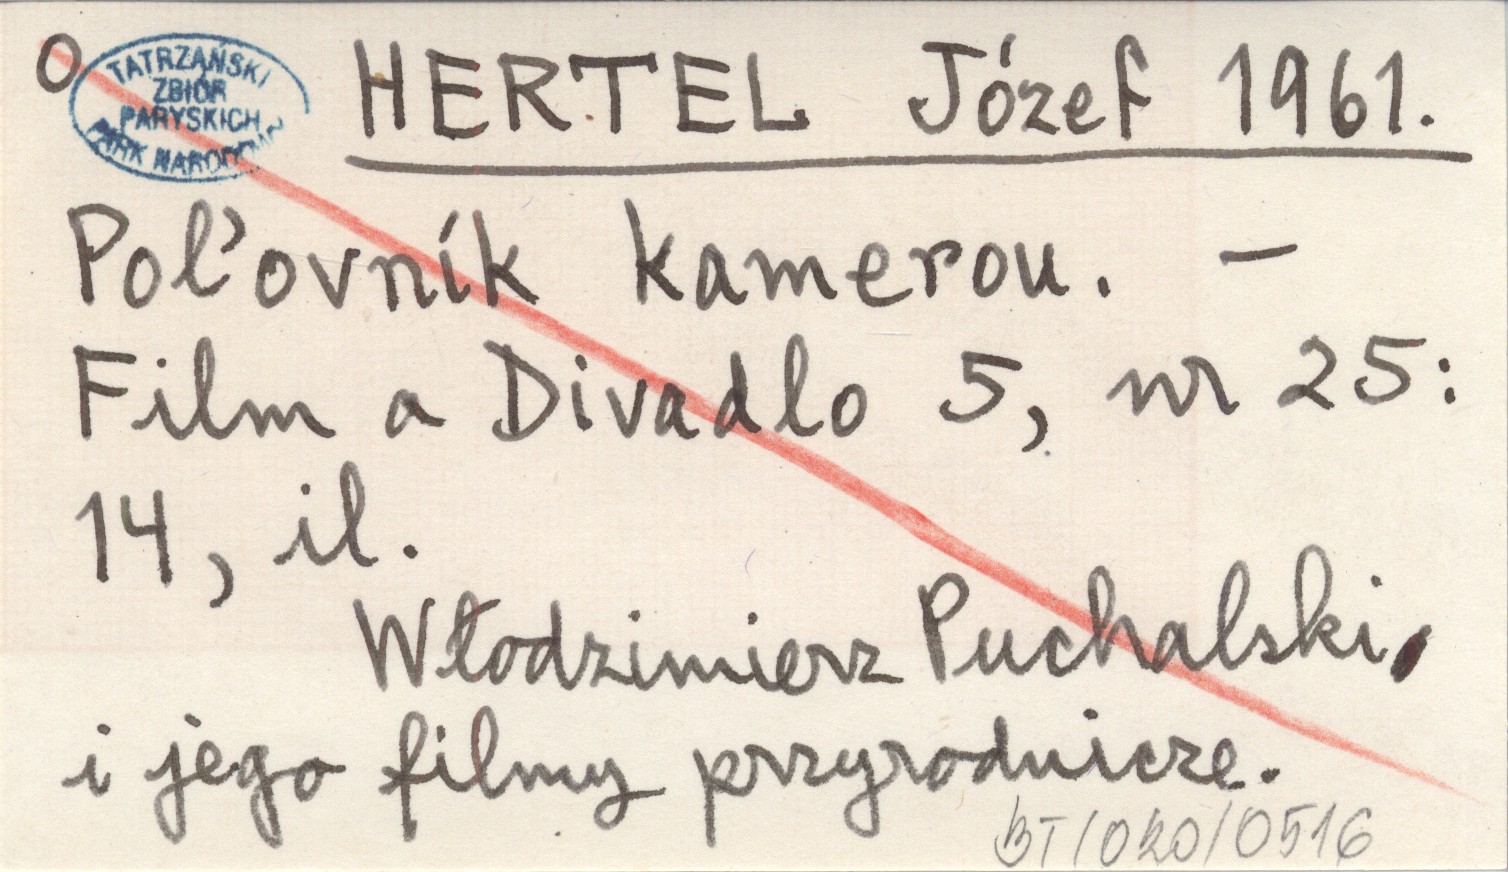 O
TATRZAŃSKI
ZBIÓR
PARYSKICH
PARK NARODOWY
HERTEL Józef 1961.
Poľovník kamerou. –
Film a Divadlo 5, nr 25:
14, il.
Włodzimierz Puchalski,
i jego filmy przyrodnicze.
BT/020/0516